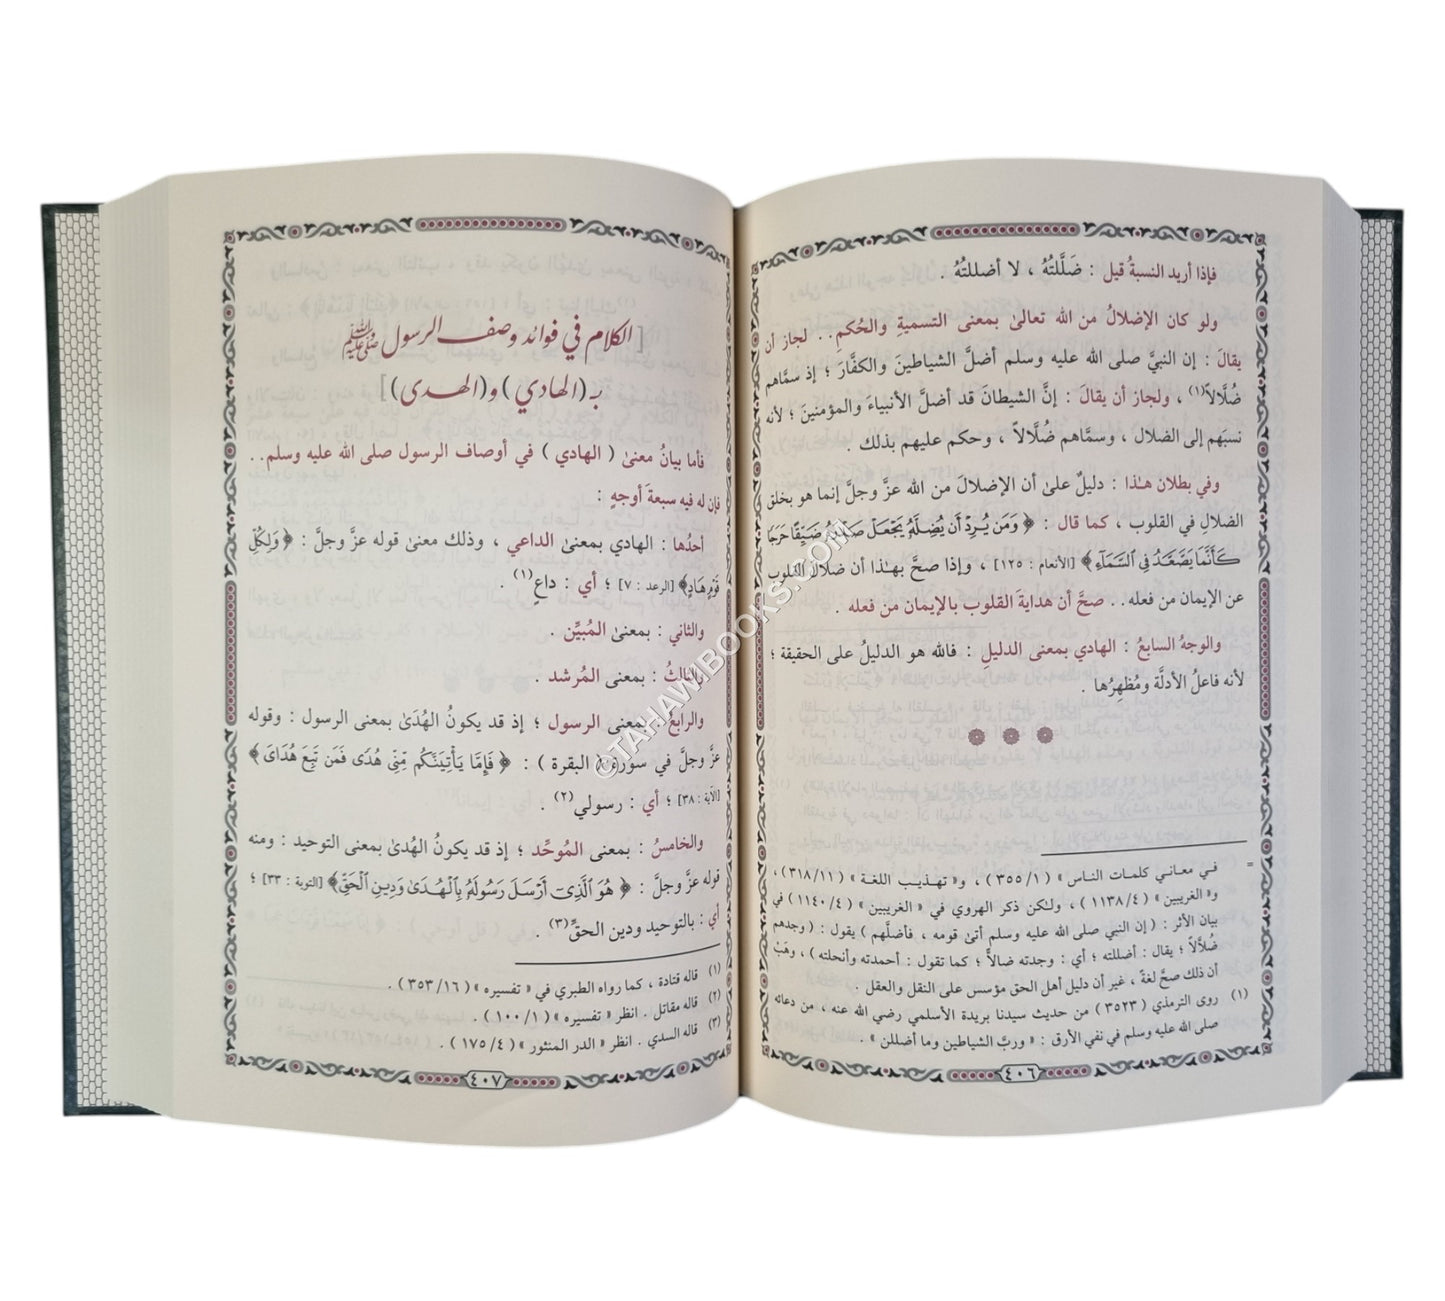 فإذا أريد النسبةُ قيل : ضَلَّلتُهُ ، لا أضللتُهُ .
ولو كان الإضلالُ من الله تعالىٰ بمعنى التسميةِ والحُكمِ . . لجاز أن
يقالَ : إن النبيَّ صلى الله عليه وسلم أضلَّ الشياطينَ والكفَّارَ ؛ إذ سمَّاهم
ضُلَّالاً(١) ، ولجاز أن يقالَ : إنَّ الشيطانَ قد أضلَّ الأنبياءَ والمؤمنينَ ؛ لأنه
نسبَهم إلى الضلال ، وسمَّاهم ضُلَّالاً ، وحكم عليهم بذلك .
وفي بطلان هـٰذا : دليلٌ علىٰ أن الإضلالَ من الله عزَّ وجلَّ إنما هو بخلق
الضلالِ في القلوب ، كما قال : ﴿ وَمَن يُرِدْ أَن يُضِلَّهُۥ يَجْعَلْ صَدْرَهُۥ ضَيِّقًا حَرَجًا
كَأَنَّمَا يَصَّعَّدُ فِي ٱلسَّمَآءِ ﴾ [الأنعام : ١٢٥] ، وإذا صحَّ بهـٰذا أن ضلالَ القلوبِ
عن الإيمان من فعله . . صحَّ أن هدايةَ القلوب بالإيمان من فعله .
والوجهُ السابعُ : الهادي بمعنى الدليلِ : فالله هو الدليلُ على الحقيقة ؛
لأنه فاعلُ الأدلَّة ومُظهِرُها .
= في معاني كلمات الناس » ( ٣٥٥/١ ) ، و« تهذيب اللغة » ( ٣١٨/١١ ) ،
و« الغريبين » ( ١١٣٨/٤ ) ، ولكن ذكر الهروي في « الغريبين » ( ١١٤٠/٤ ) في
بيان الأثر : ( إن النبي صلى الله عليه وسلم أتىٰ قومه ، فأضلَّهم ) يقول : ( وجدهم
ضُلَّالاً ؛ يقال : أضللته ؛ أي : وجدته ضالاً ؛ كما تقول : أحمدته وأبخلته ) ، وهَبْ
أن ذلك صحَّ لغةً ، غير أن دليل أهل الحق مؤسس على النقل والعقل .
(١) روى الترمذي ( ٣٥٢٣ ) من حديث سيدنا بريدة الأسلمي رضي الله عنه ، من دعائه
صلى الله عليه وسلم في نفي الأرق : « وربَّ الشياطين وما أضللن » .
٤٠٦
[ الكلام في فوائد وصف الرسول ﷺ
بـ ( الهادي ) و( الهدى ) ]
فأما بيانُ معنىٰ ( الهادي ) في أوصاف الرسول صلى الله عليه وسلم . .
فإن له فيه سبعةَ أوجهٍ :
أحدُها : الهادي بمعنى الداعي ، وذلك معنىٰ قوله عزَّ وجلَّ : ﴿ وَلِكُلِّ
قَوْمٍ هَادٍ ﴾ [الرعد : ٧] ؛ أي : داعٍ(١) .
والثاني : بمعنى المُبيِّن .
والثالثُ : بمعنى المُرشد .
والرابعُ : بمعنى الرسول ؛ إذ قد يكونُ الهُدىٰ بمعنى الرسول : وقوله
عزَّ وجلَّ في سورة ( البقرة ) : ﴿ فَإِمَّا يَأْتِيَنَّكُم مِّنِّي هُدًى فَمَن تَبِعَ هُدَايَ ﴾
[الآية : ٣٨] ؛ أي : رسولي(٢) .
والخامسُ : بمعنى المُوحِّد ؛ إذ قد يكونُ الهُدىٰ بمعنى التوحيد : ومنه
قوله عزَّ وجلَّ : ﴿ هُوَ ٱلَّذِيٓ أَرْسَلَ رَسُولَهُۥ بِٱلْهُدَىٰ وَدِينِ ٱلْحَقِّ ﴾ [التوبة : ٣٣] ؛
أي : بالتوحيد ودين الحقِّ(٣) .
(١) قاله قتادة ، كما رواه الطبري في « تفسيره » ( ٣٥٣/١٦ ) .
(٢) قاله مقاتل . انظر « تفسيره » ( ١٠٠/١ ) .
(٣) قاله السدي . انظر « الدر المنثور » ( ١٧٥/٤ ) .
٤٠٧
©TAHAWIBOOKS.COM